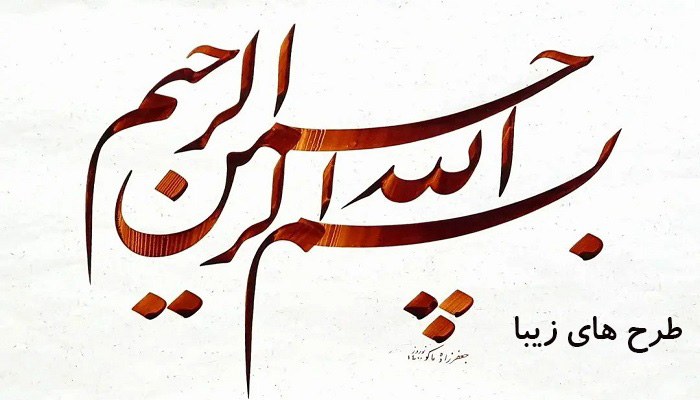 بسم الله الرحمن الرحیم
طرح های زیبا